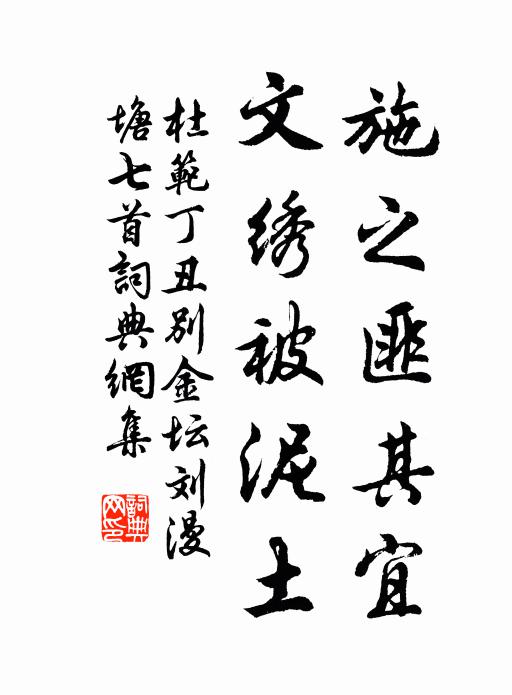 施之匪其宜
文绣被泥土
杜範丁丑别金坛刘漫
塘七首詞典網集
詞典
网印